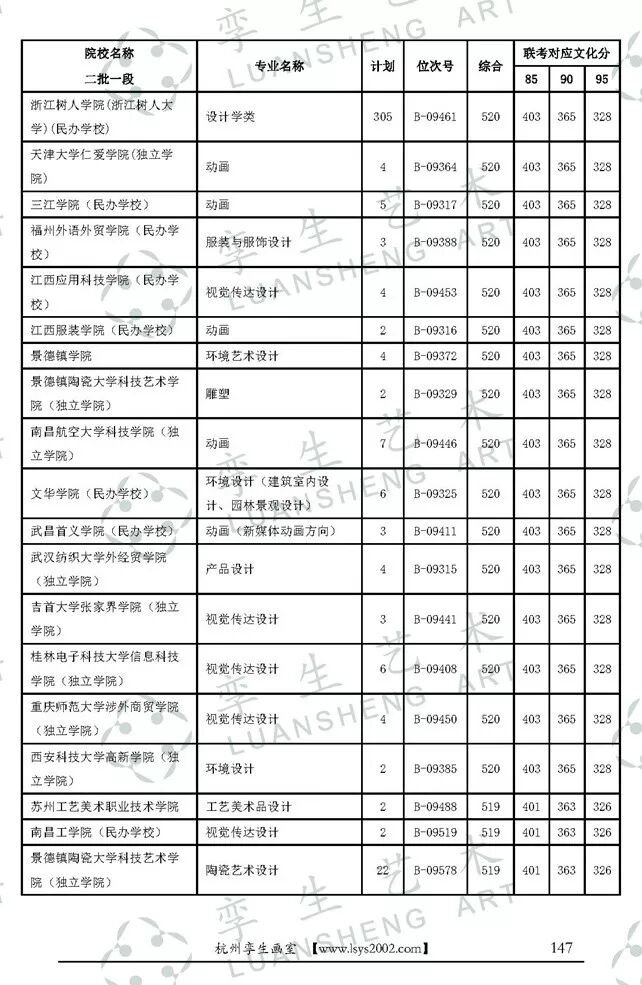 孪生艺术
LUANSHENG ART
院校名称
二批一段
专业名称
计划
位次号
综合
联考对应文化分
85 90 95
浙江树人学院(浙江树人大
学)(民办学校)
设计学类 305 B-09461 520 403 365 328
天津大学仁爱学院(独立学
院)
动画 4 B-09364 520 403 365 328
三江学院（民办学校） 动画 5 B-09317 520 403 365 328
福州外语外贸学院（民办学
校）
服装与服饰设计 3 B-09388 520 403 365 328
江西应用科技学院（民办学
校）
视觉传达设计 4 B-09453 520 403 365 328
江西服装学院（民办学校） 动画 2 B-09316 520 403 365 328
景德镇学院 环境艺术设计 4 B-09372 520 403 365 328
景德镇陶瓷大学科技艺术学
院（独立学院）
雕塑 2 B-09329 520 403 365 328
南昌航空大学科技学院（独
立学院）
动画 7 B-09446 520 403 365 328
文华学院（民办学校）
环境设计（建筑室内设
计、园林景观设计）
6 B-09325 520 403 365 328
武昌首义学院（民办学校） 动画（新媒体动画方向） 3 B-09411 520 403 365 328
武汉纺织大学外经贸学院
（独立学院）
产品设计 4 B-09315 520 403 365 328
吉首大学张家界学院（独立
学院）
视觉传达设计 3 B-09441 520 403 365 328
桂林电子科技大学信息科技
学院（独立学院）
视觉传达设计 6 B-09408 520 403 365 328
重庆师范大学涉外商贸学院
（独立学院）
视觉传达设计 4 B-09450 520 403 365 328
西安科技大学高新学院（独
立学院）
环境设计 2 B-09385 520 403 365 328
苏州工艺美术职业技术学院 工艺美术品设计 2 B-09488 519 401 363 326
南昌工学院（民办学校） 视觉传达设计 2 B-09519 519 401 363 326
景德镇陶瓷大学科技艺术学
院（独立学院）
陶瓷艺术设计 22 B-09578 519 401 363 326
杭州孪生画室 【www.lsys2002.com】 147